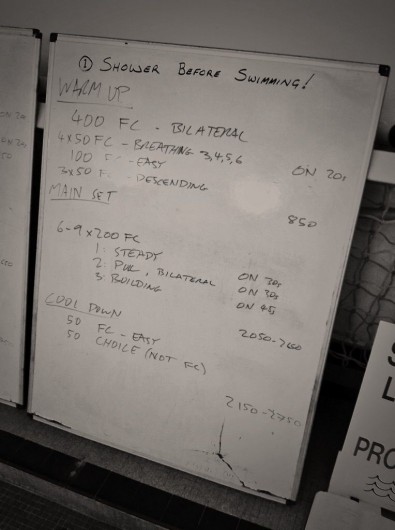 ① SHOWER BEFORE SWIMMING!
WARM UP
400 FC - BILATERAL
4x50 FC - BREATHING 3,4,5,6 ON 20s
100 FC - EASY
3x50 F - DESCENDING
850
MAIN SET
6-9 x 200 FC
1: STEADY ON 20s
2: PULL, BILATERAL ON 30s
3: BUILDING ON 45s
2050-2650
COOL DOWN
50 FC - EASY
50 CHOICE (NOT FC)
2150-2750
S
L
PRO